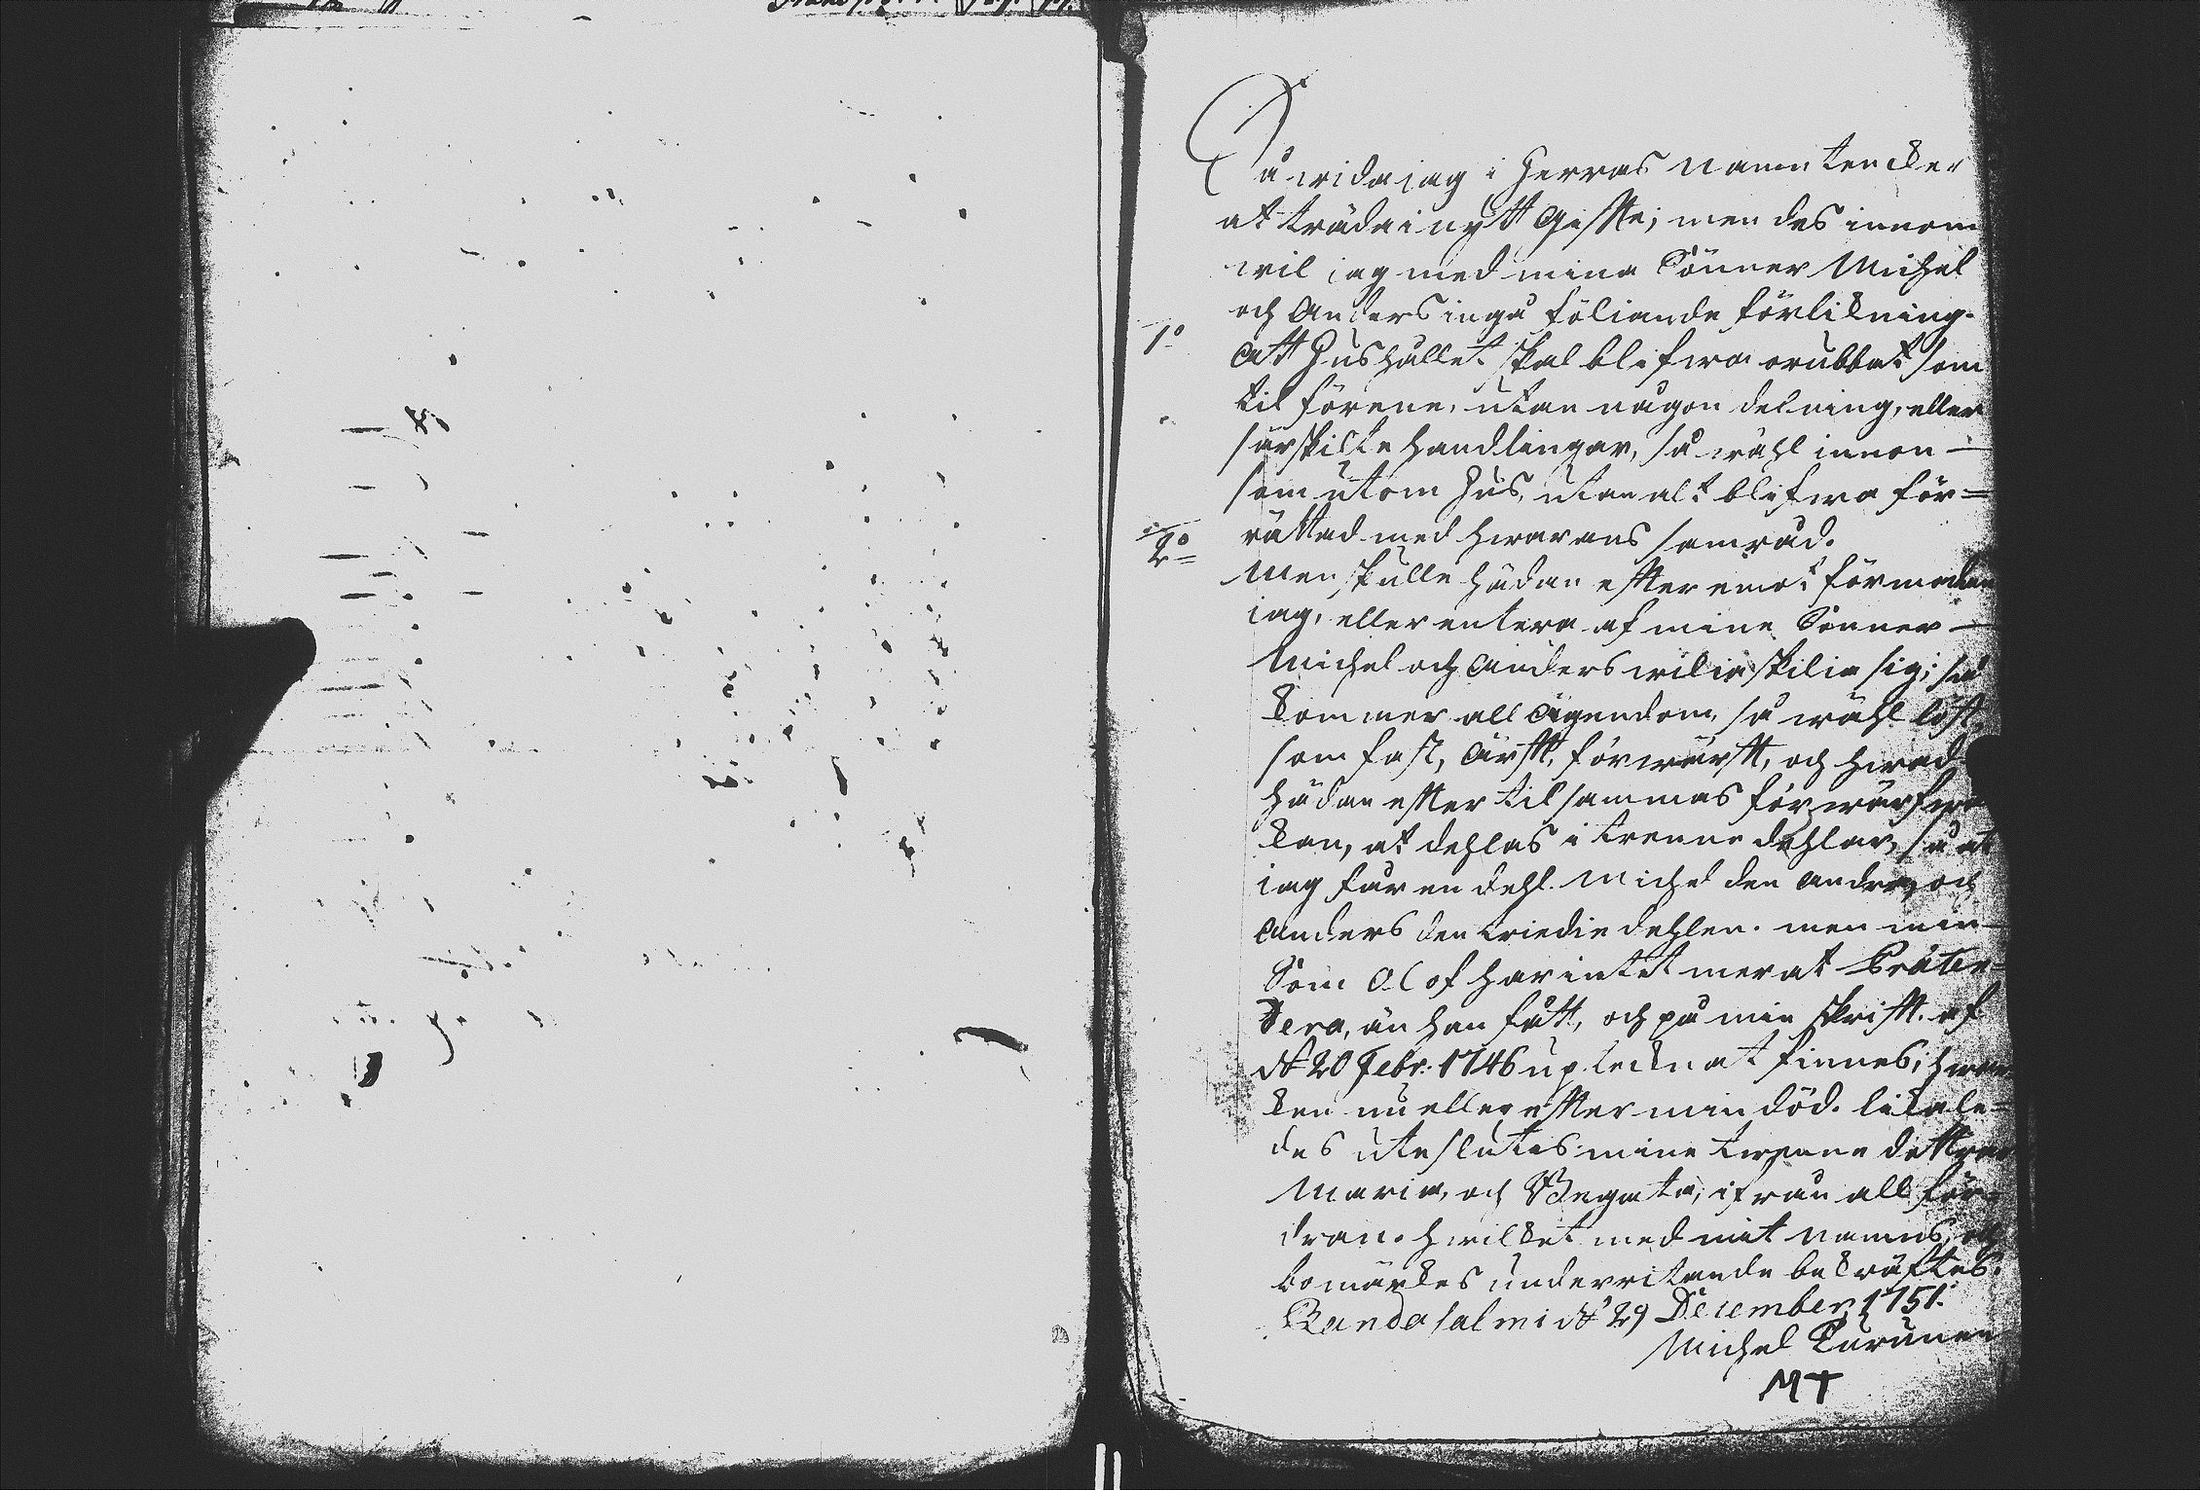 Så wida jag i Herras Namn tencker
at träda i nytt Gifte; men des innom
wil jag med mina Sönner Michel
och Anders ingå föliande förlikning.
1o
Att Hushållet skal blifwa orubbat som
til förene, utan någon delning, eller
särskilte handlingar, så wähl innon
som utom Hus, utan alt blifwa för=
rättad med hwarans samråd.
2o
Men skulle hädan efter emot förmodan
jag, eller entera af mine Sönner
Michel och Anders wilja skilia sig; så
kommer all Ägendom, så wähl löst
som fast, Ärft, förwärft, och hwad
hädan efter tilsammas förwärfwa
kan, at dehlas i trenne dehlar, så at
jag får en dehl. Michel den andra, och
Anders den triedie dehlen. men min
Son Olof har intet mer at Præten=
dera, än han fått, och på min skrift af
dt 20 Febr: 1746 uptecknat finnes; hwar
ken nu eller efter min död. likale=
des uteslutes mine twenne dottrar
Maria, och Beata, ifrån all for=
dran. hwilket med mit namns, och
bomärkes underritande bekräftes.
Randasalmi dt 29 December 1751.
Michel Turunen
MT